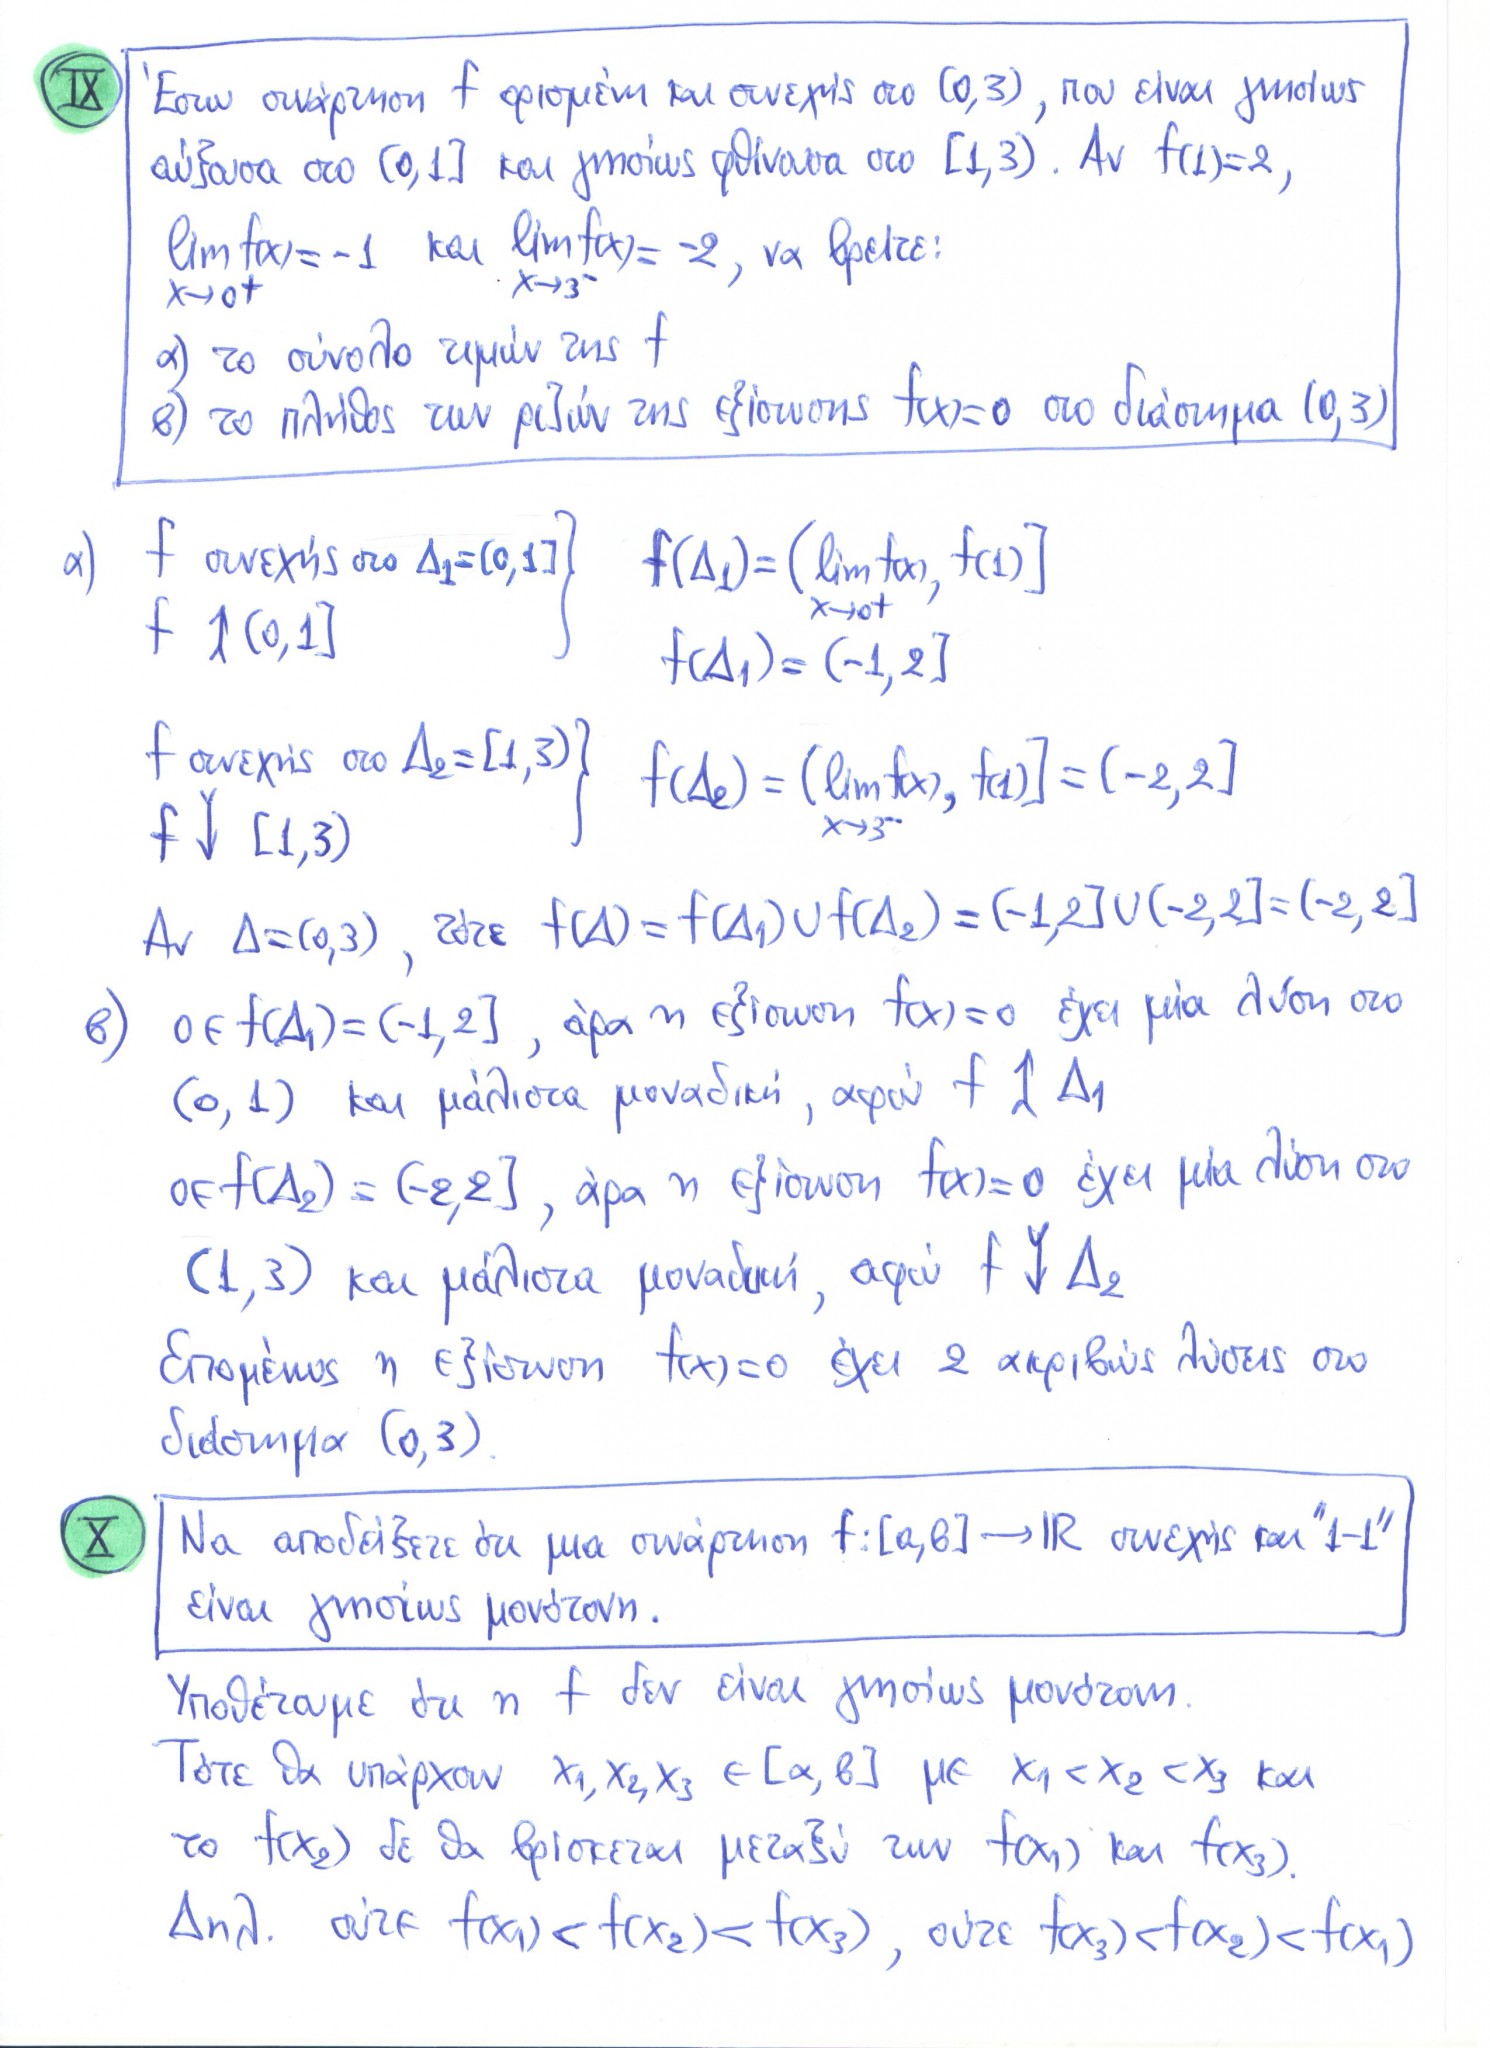 IX Έστω συνάρτηση f ορισμένη και συνεχής στο (0,3), που είναι γνησίως
αύξουσα στο (0,1] και γνησίως φθίνουσα στο [1,3). Αν f(1)=2,
lim f(x)=-1 και lim f(x)=-2, να βρείτε:
x→0+ x→3-
α) το σύνολο τιμών της f
β) το πλήθος των ριζών της εξίσωσης f(x)=0 στο διάστημα (0,3)
α) f συνεχής στο Δ₁=(0,1] } f(Δ₁)=(lim f(x), f(1)]
x→0+
f ↑ (0,1]
f(Δ₁)=(-1,2]
f συνεχής στο Δ₂=[1,3) } f(Δ₂)=(lim f(x), f(1)]=(-2,2]
x→3-
f ↓ [1,3)
Αν Δ=(0,3), τότε f(Δ)=f(Δ₁)∪f(Δ₂)=(-1,2]∪(-2,2]=(-2,2]
β) 0∈f(Δ₁)=(-1,2], άρα η εξίσωση f(x)=0 έχει μία λύση στο
(0,1) και μάλιστα μοναδική, αφού f ↑ Δ₁
0∈f(Δ₂)=(-2,2], άρα η εξίσωση f(x)=0 έχει μία λύση στο
(1,3) και μάλιστα μοναδική, αφού f ↓ Δ₂
Επομένως η εξίσωση f(x)=0 έχει 2 ακριβώς λύσεις στο
διάστημα (0,3).
X Να αποδείξετε ότι μια συνάρτηση f:[α,β]→ℝ συνεχής και "1-1"
είναι γνησίως μονότονη.
Υποθέτουμε ότι η f δεν είναι γνησίως μονότονη.
Τότε θα υπάρχουν x₁,x₂,x₃ ∈[α,β] με x₁<x₂<x₃ και
το f(x₂) δε θα βρίσκεται μεταξύ των f(x₁) και f(x₃).
Δηλ. ούτε f(x₁)<f(x₂)<f(x₃), ούτε f(x₃)<f(x₂)<f(x₁)